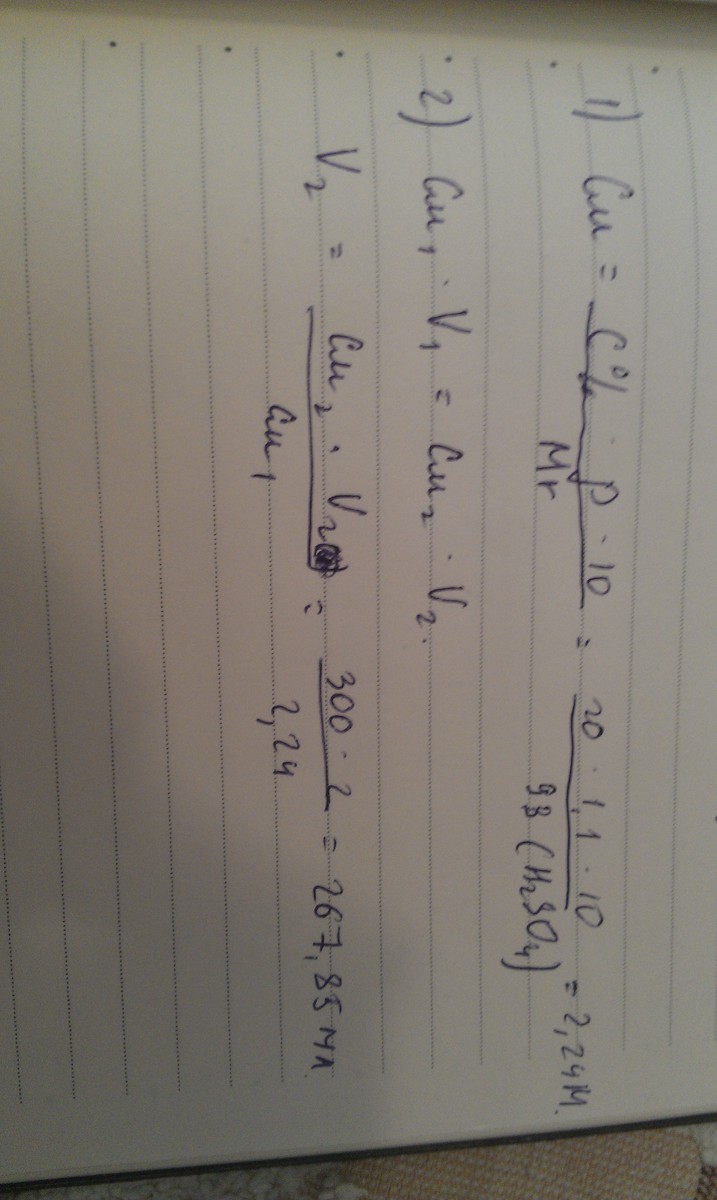 1) См = С% · ρ · 10 / Mr = 20 · 1,1 · 10 / 98 (H₂SO₄) = 2,24 М.
2) См₁ · V₁ = См₂ · V₂.
V₂ = См₂ · V₂ / См₁ = 300 · 2 / 2,24 = 267,85 мл.